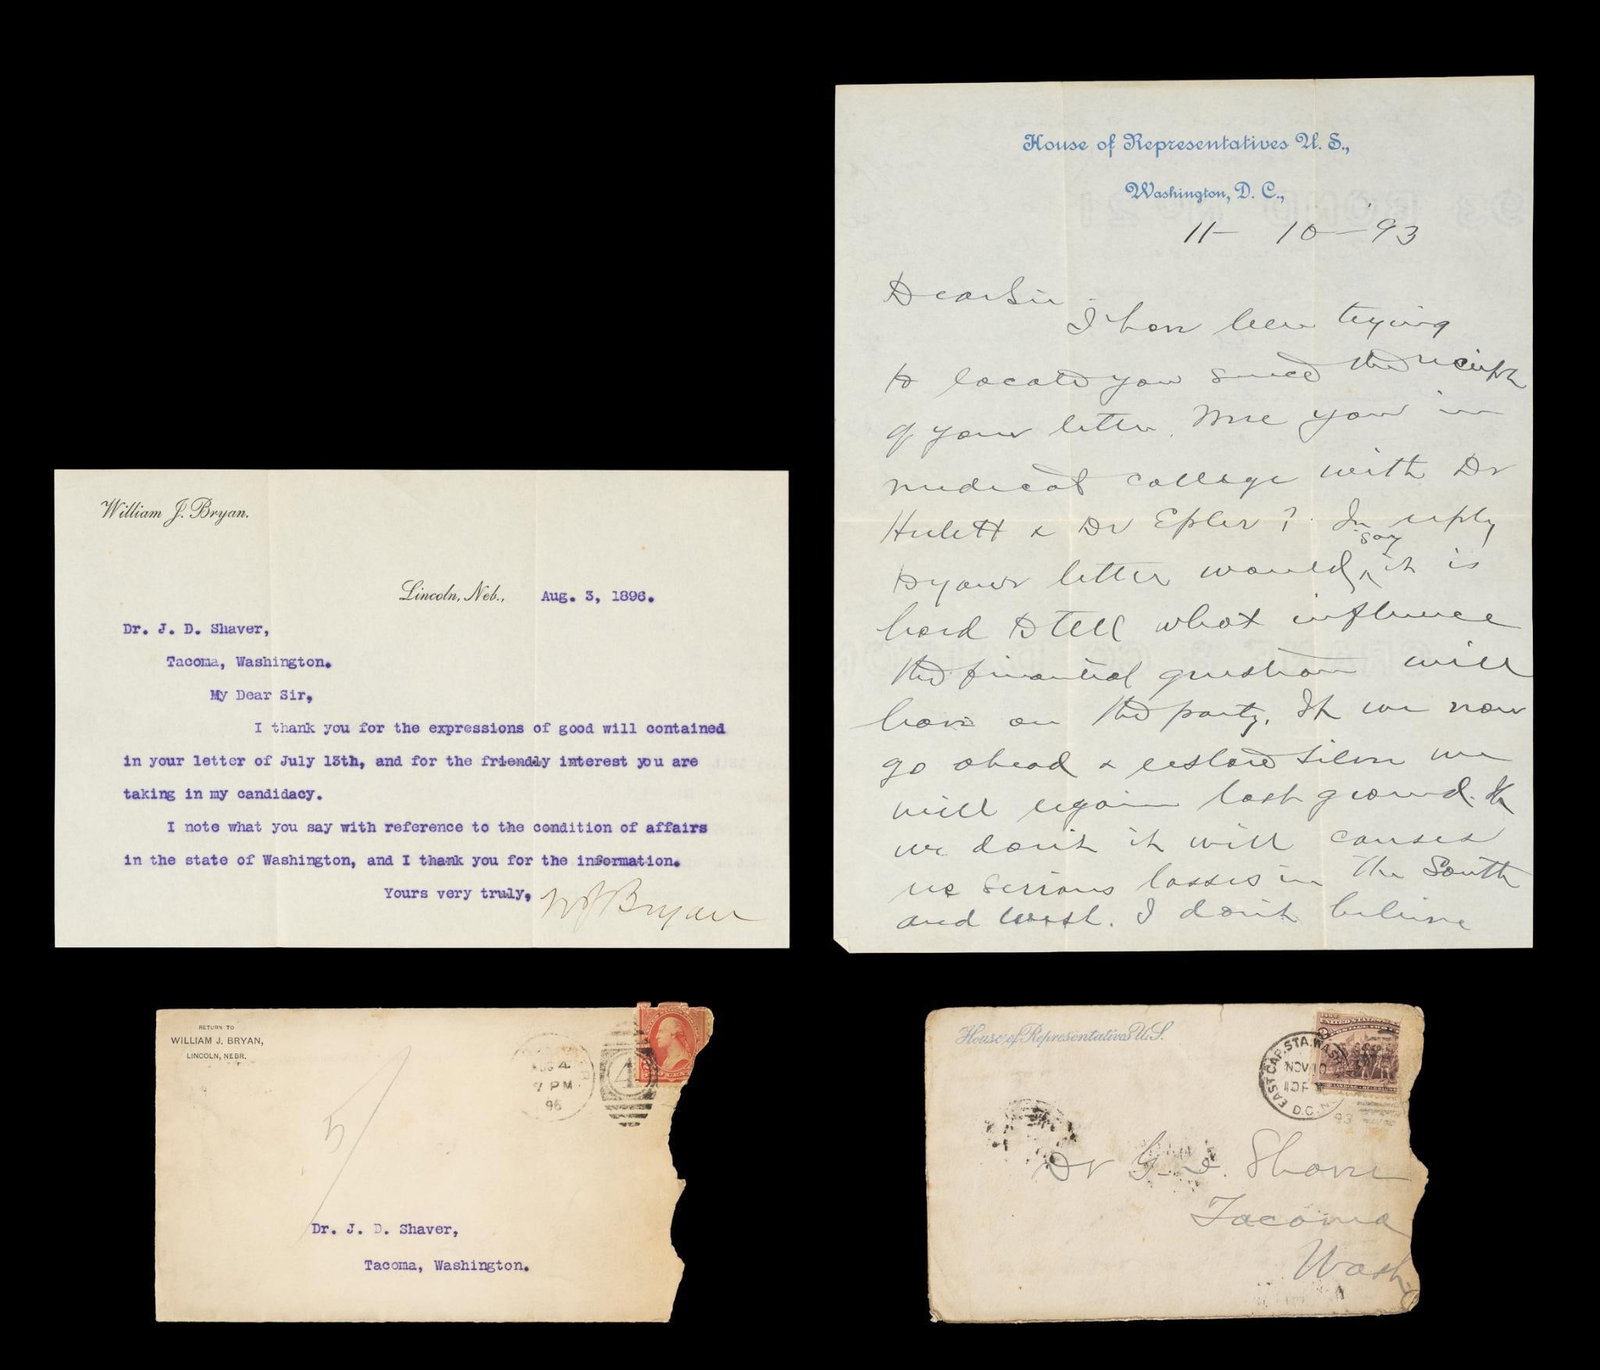 William J. Bryan.
Lincoln, Neb., Aug. 3, 1896.
Dr. J. D. Shaver,
Tacoma, Washington.
My Dear Sir,
I thank you for the expressions of good will contained
in your letter of July 13th, and for the friendly interest you are
taking in my candidacy.
I note what you say with reference to the condition of affairs
in the state of Washington, and I thank you for the information.
Yours very truly, W J Bryan
House of Representatives U. S.,
Washington, D. C.,
11- 10- 93
Dear Sir
I have been trying
to locate you since the receipt
of your letter. Were you in
medical college with Dr
Hulett & Dr Epler? In reply
to your letter would say it is
hard to tell what influence
the financial question will
have on the party. If we now
go ahead & restore silver we
will regain lost ground. If
we don't it will cause
us serious losses in the South
and West. I don't believe
RETURN TO
WILLIAM J. BRYAN,
LINCOLN, NEBR.
AUG 4
7 PM
96
4
5
Dr. J. D. Shaver,
Tacoma, Washington.
House of Representatives U.S.
EAST CAP. STA. WASH
NOV 10
D.C.
93
Dr
Tacoma
Wash